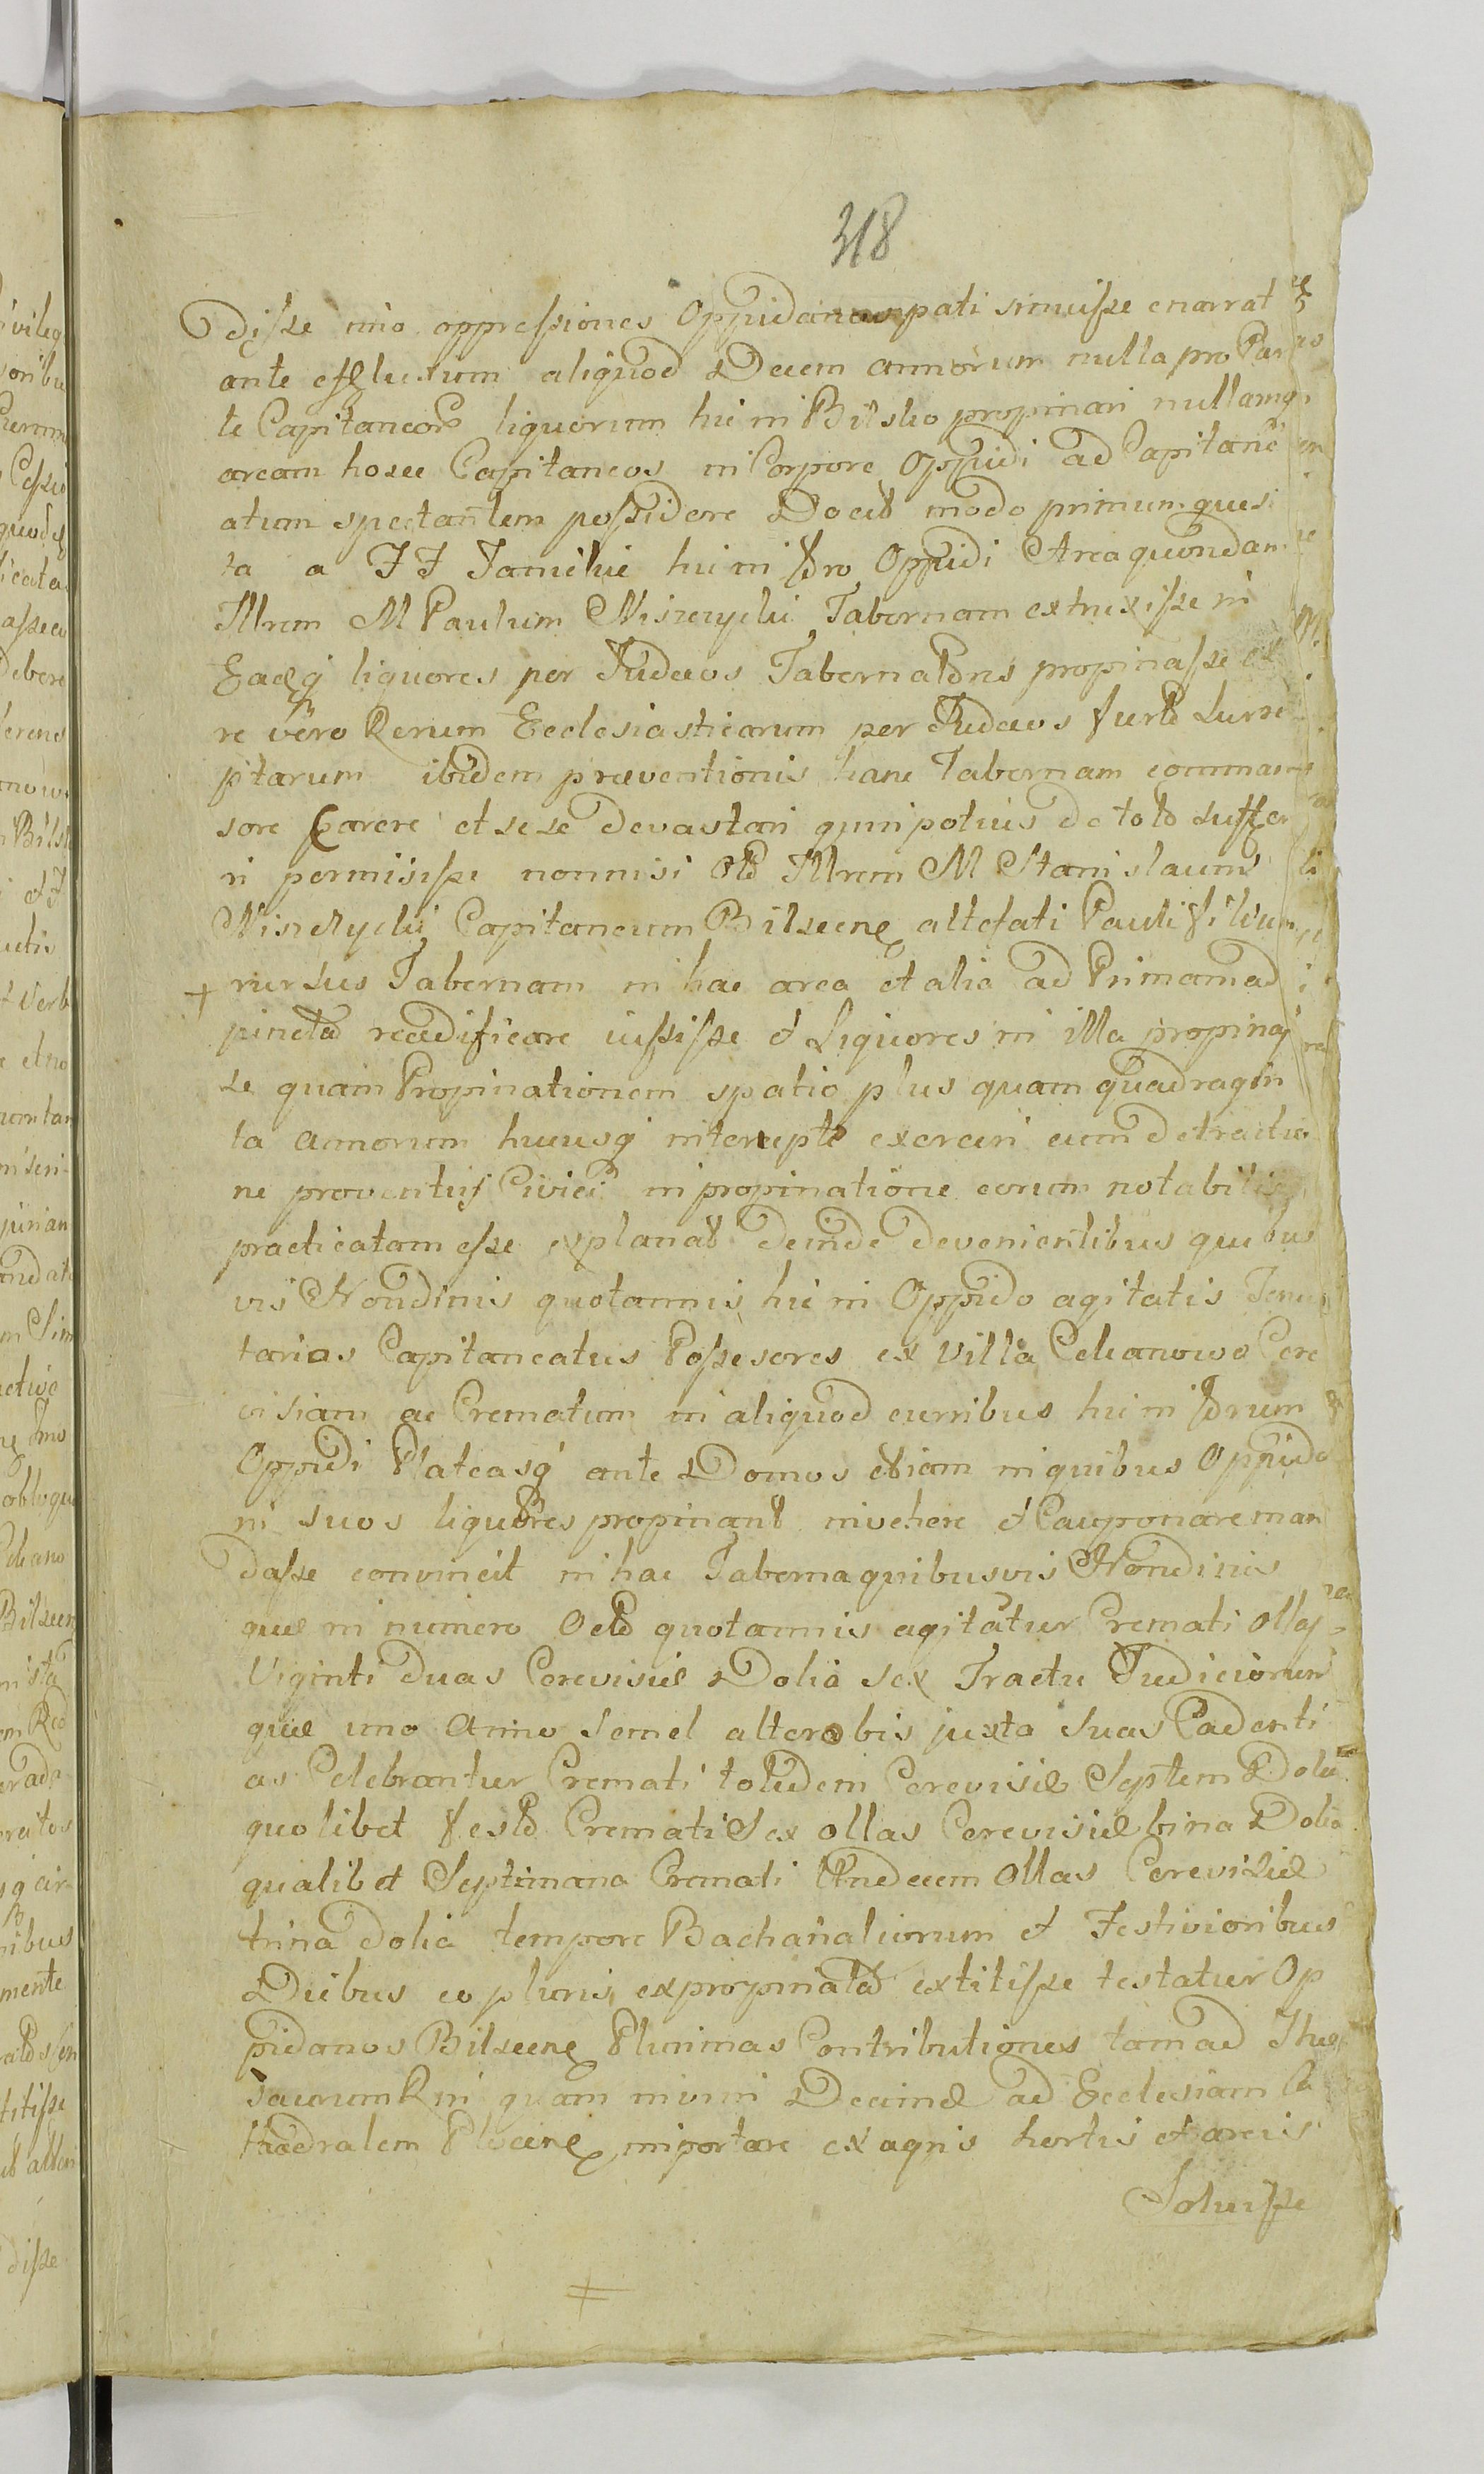 318
disse imo oppressiones Oppidanos pati sivisse enarrat
ante effluxum aliquod Decem annorum nulla pro Par
te Capitaneor liquorum hic in Bilsko propinari nullamq
aream hosce Capitaneos in Corpore Oppidi ad Capitane
atum spectantem possidere Docet modo primum quesi
ta a Familie hic in foro Oppidi Area quondam
Illrem M Paulum Niszczycki Tabernam extruxisse in
Eaq liquores per Judæos Tabernatores propinasse et
re vero Rerum Ecclesiasticarum per Judæos furto surre
ptarum ibidem præventionis hanc Tabernam
carere et sese devastari quin potius de toto
ri permisisse nonnisi Illrem M Stanislaum
Niszczycki Capitaneum Bilscens altefati Pauli filium
+ rursus Tabernam in hac area et alia ad Primam ad
juncta reædificare iussisse et Liquores in illa propinas
se quam Propinationem spatio plus quam quadragin
ta annorum hucusq interrupte exerceri cum detractio
ne proventus Civici in propinatione eorum notabilis
practicatam esse explanat deinde devenientibus quibus
vis Nondinis quotannis hic in Oppido agitatis Tenu
tarios Capitaneatus Possesores ex Villa Cere
visiam ac Crematum in aliquod curribus hic in forum
Oppidi Plateasq ante Domos etiam in quibus Oppida
ni suos liquores propinant invehere et Cauponare man
dasse convincit in hac Taberna quibusvis Nondinis
quæ in numero Octo quotannis agitatur Cremati ollas
Viginti duas Cerevisiæ Dolia sex Tractu Judiciorum
quæ uno Anno semel altero bis juxta suas Cadenti
as Celebrantur Cremati totidem Cerevisiæ Septem Dolia
quolibet festo Cremati Sex ollas Cerevisiæ bina Dolia
qualibet Septimana Cremati Undecem Ollas Cerevisiæ
trina dolia tempore Bachanaliorum et Festivioribus
Diebus eo pluris expropinata extitisse testatur Op
pidanos Bilscens Plurimas Contributiones tam ad The
saurum Rni quam Decimæ ad Ecclesiam Ca
thedralem Plocens importare ex agris hortis et areis
Soluisse